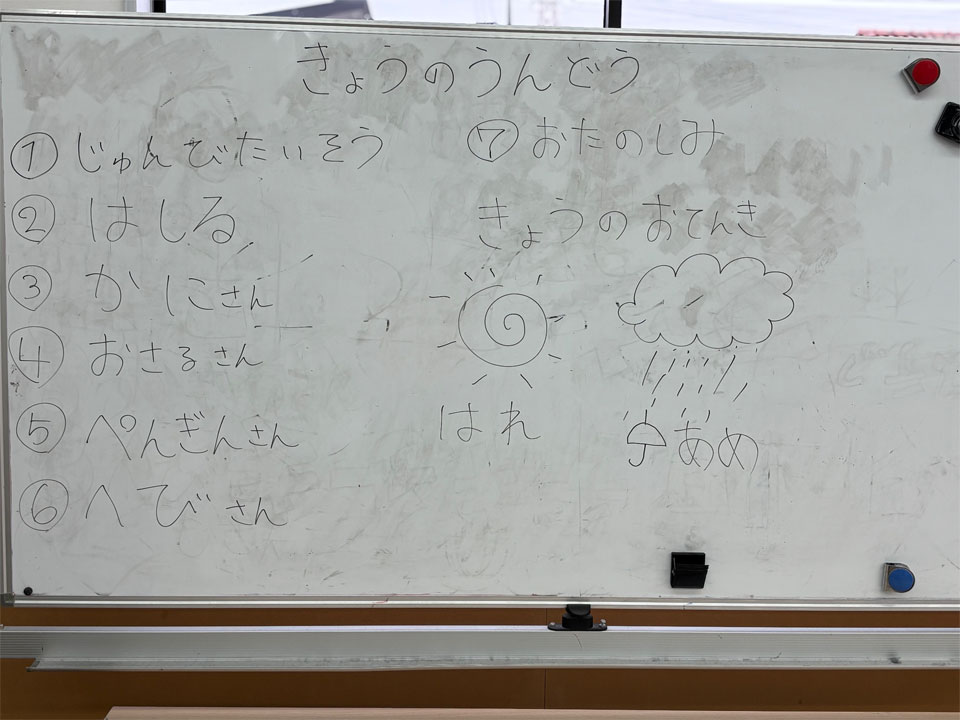 きょうのうんどう
① じゅんびたいそう
② はしる
③ かにさん
④ おさるさん
⑤ ぺんぎんさん
⑥ へびさん
⑦ おたのしみ
きょうのおてんき
はれ
あめ